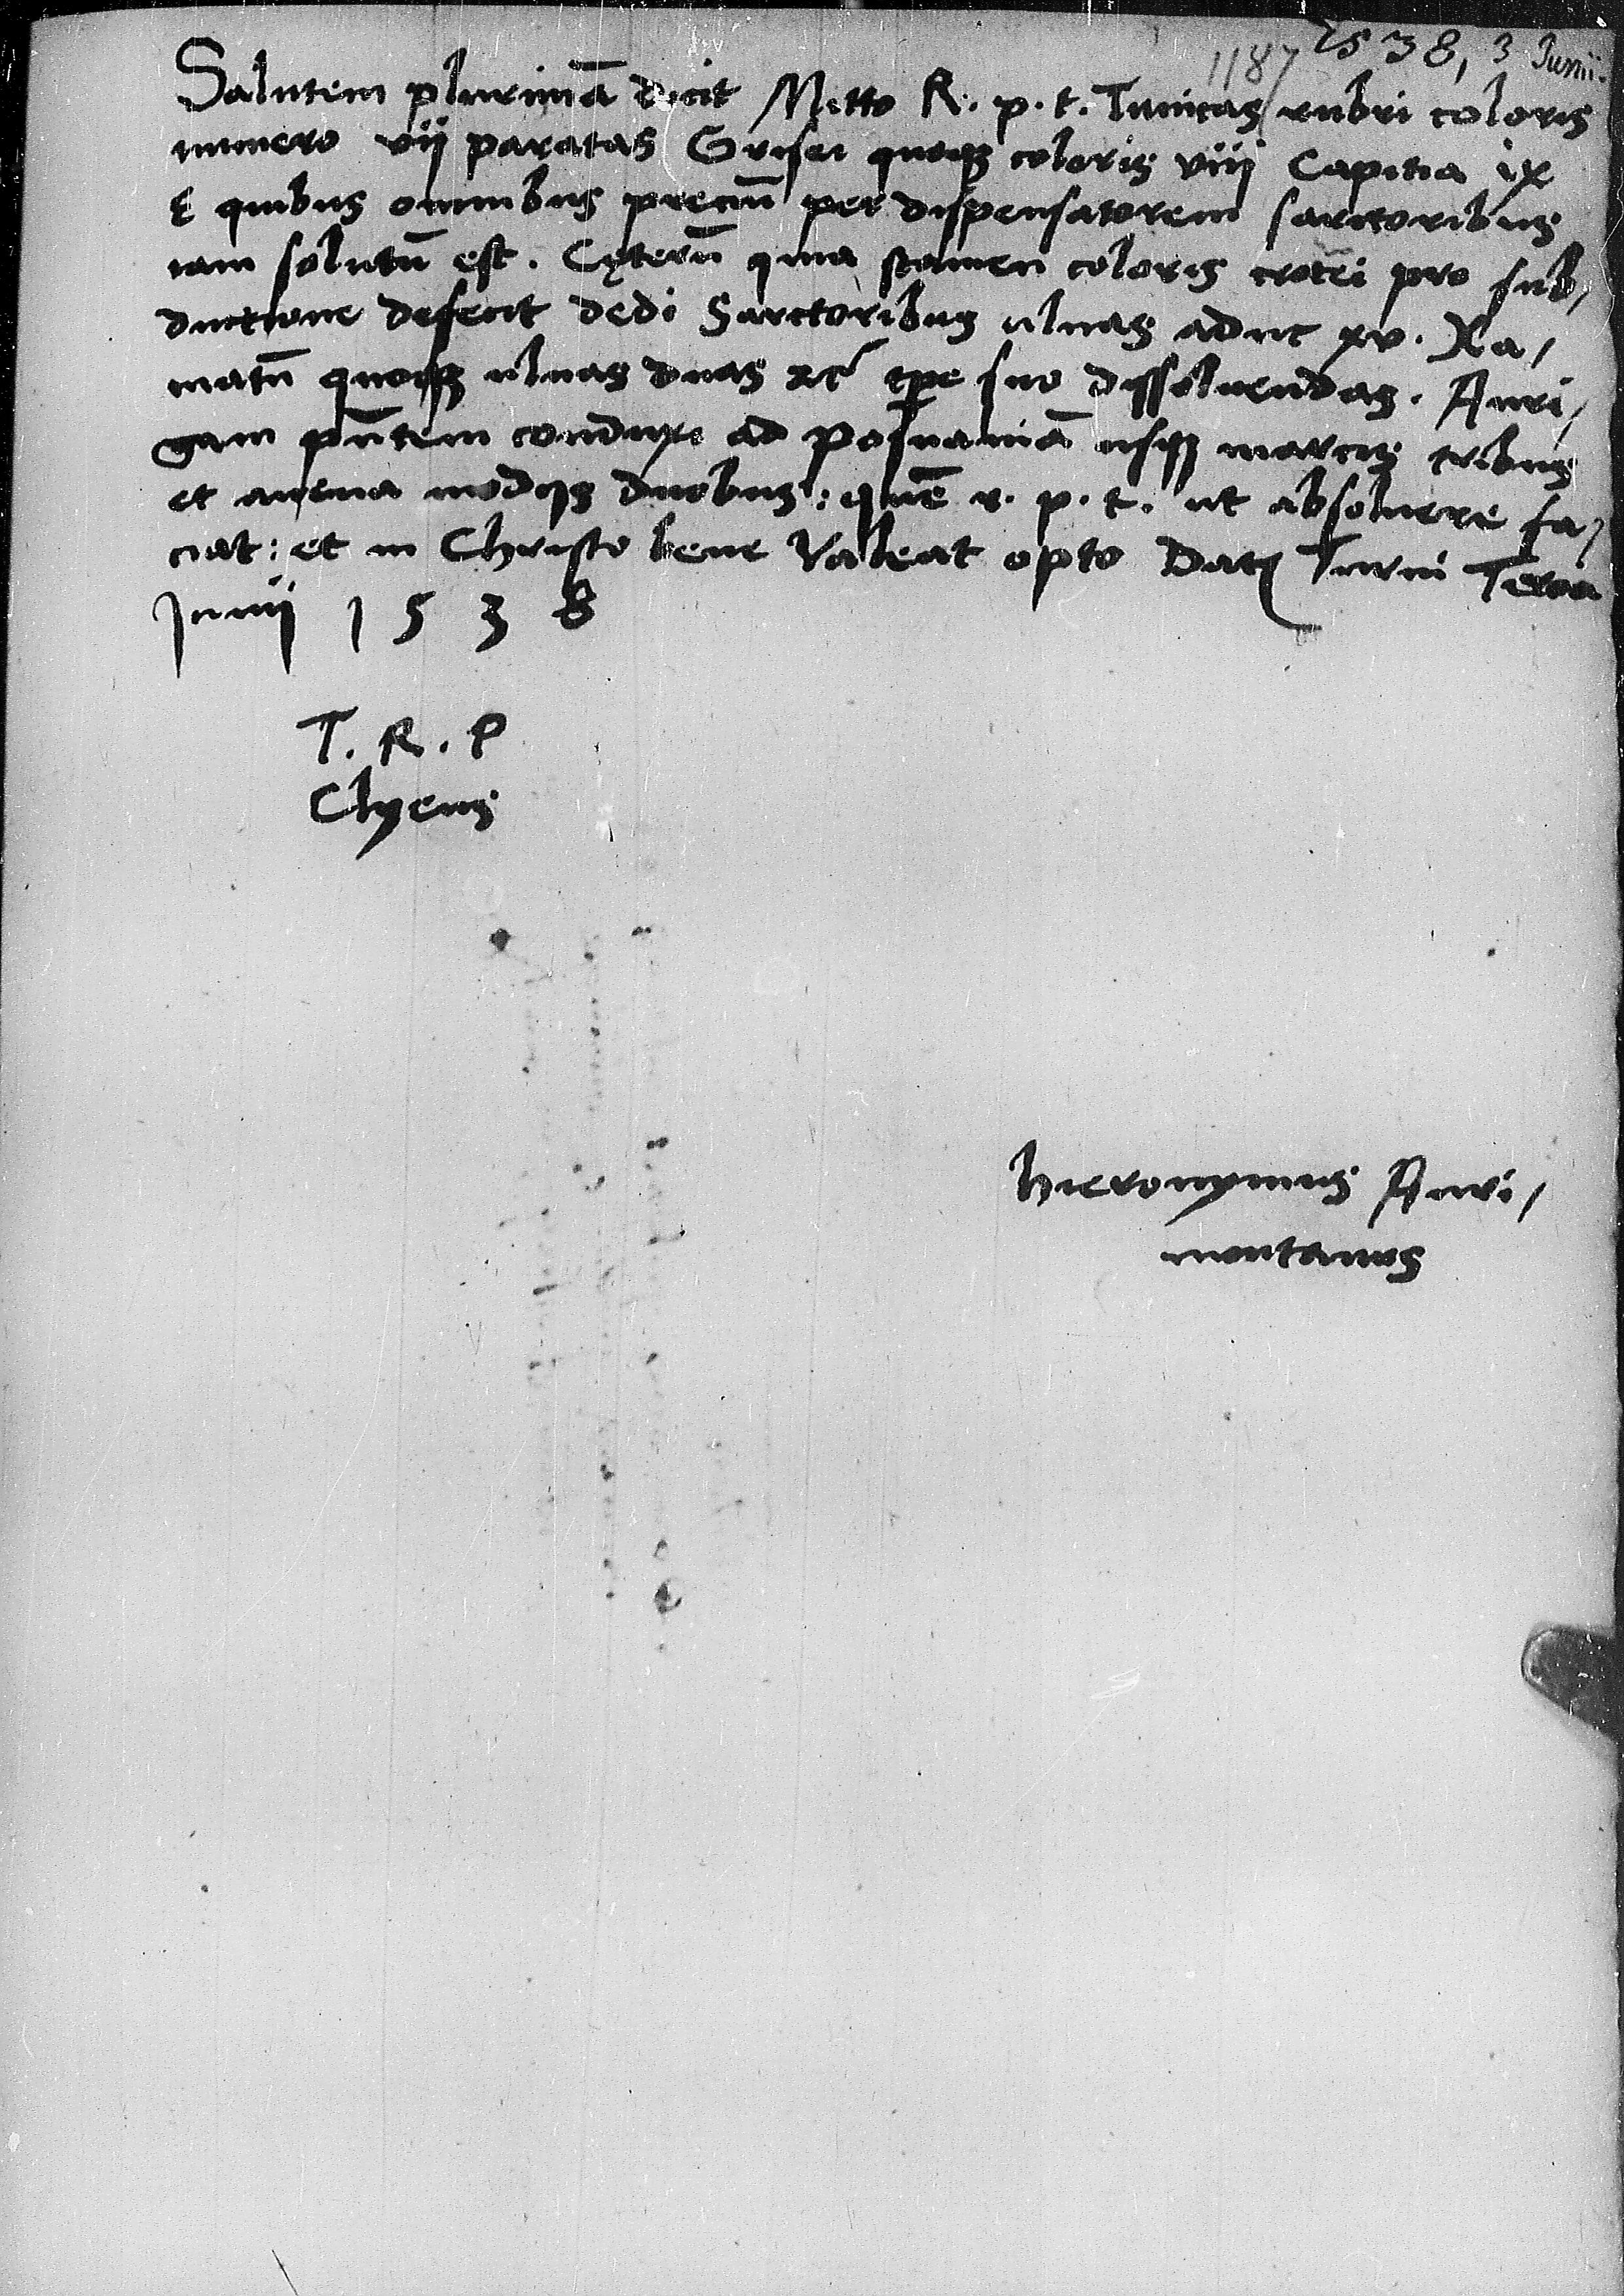 1538, 3 Junii.
1187
Salutem plurimā dicit Mitto R. p. t. Tunicas rubri coloris
numero vij paratas Grisei quoqꝫ coloris viij Capitia ix
E quibus omnibus preciū per dispensatorem sarctoribus
iam solutū est. Cęterū quia stamen coloris crocei pro sub/
ductione defecit dedi Sarctoribus ulnas adhuc xv. Ha/
matū quoqꝫ ulnas duas tpe suo dissoluendas. Auri/
gam pn̄tem conduxi ad Posnaniā usqꝫ marcis tribus
et auena modijs duobus: quē v. p. t. ut absoluere fa/
ciat: et in Christo bene Valeat opto Datꝭ Tercia
Junij 1538
T. R. P
Clyens
Hieronymus Auri/
montanus